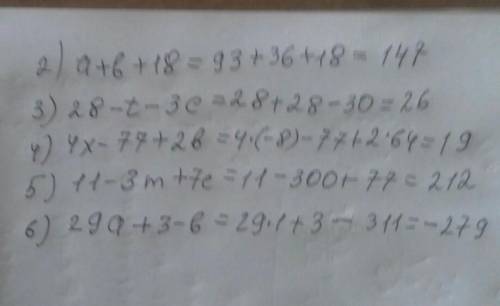 2) a+b+18=93+36+18=147
3) 28-t-3c=28+28-30=26
4) 4x-77+2b=4·(-8)-77+2·64=19
5) 11-3m+7c=11-300+77=212
6) 29a+3-b=29·1+3-311=-279